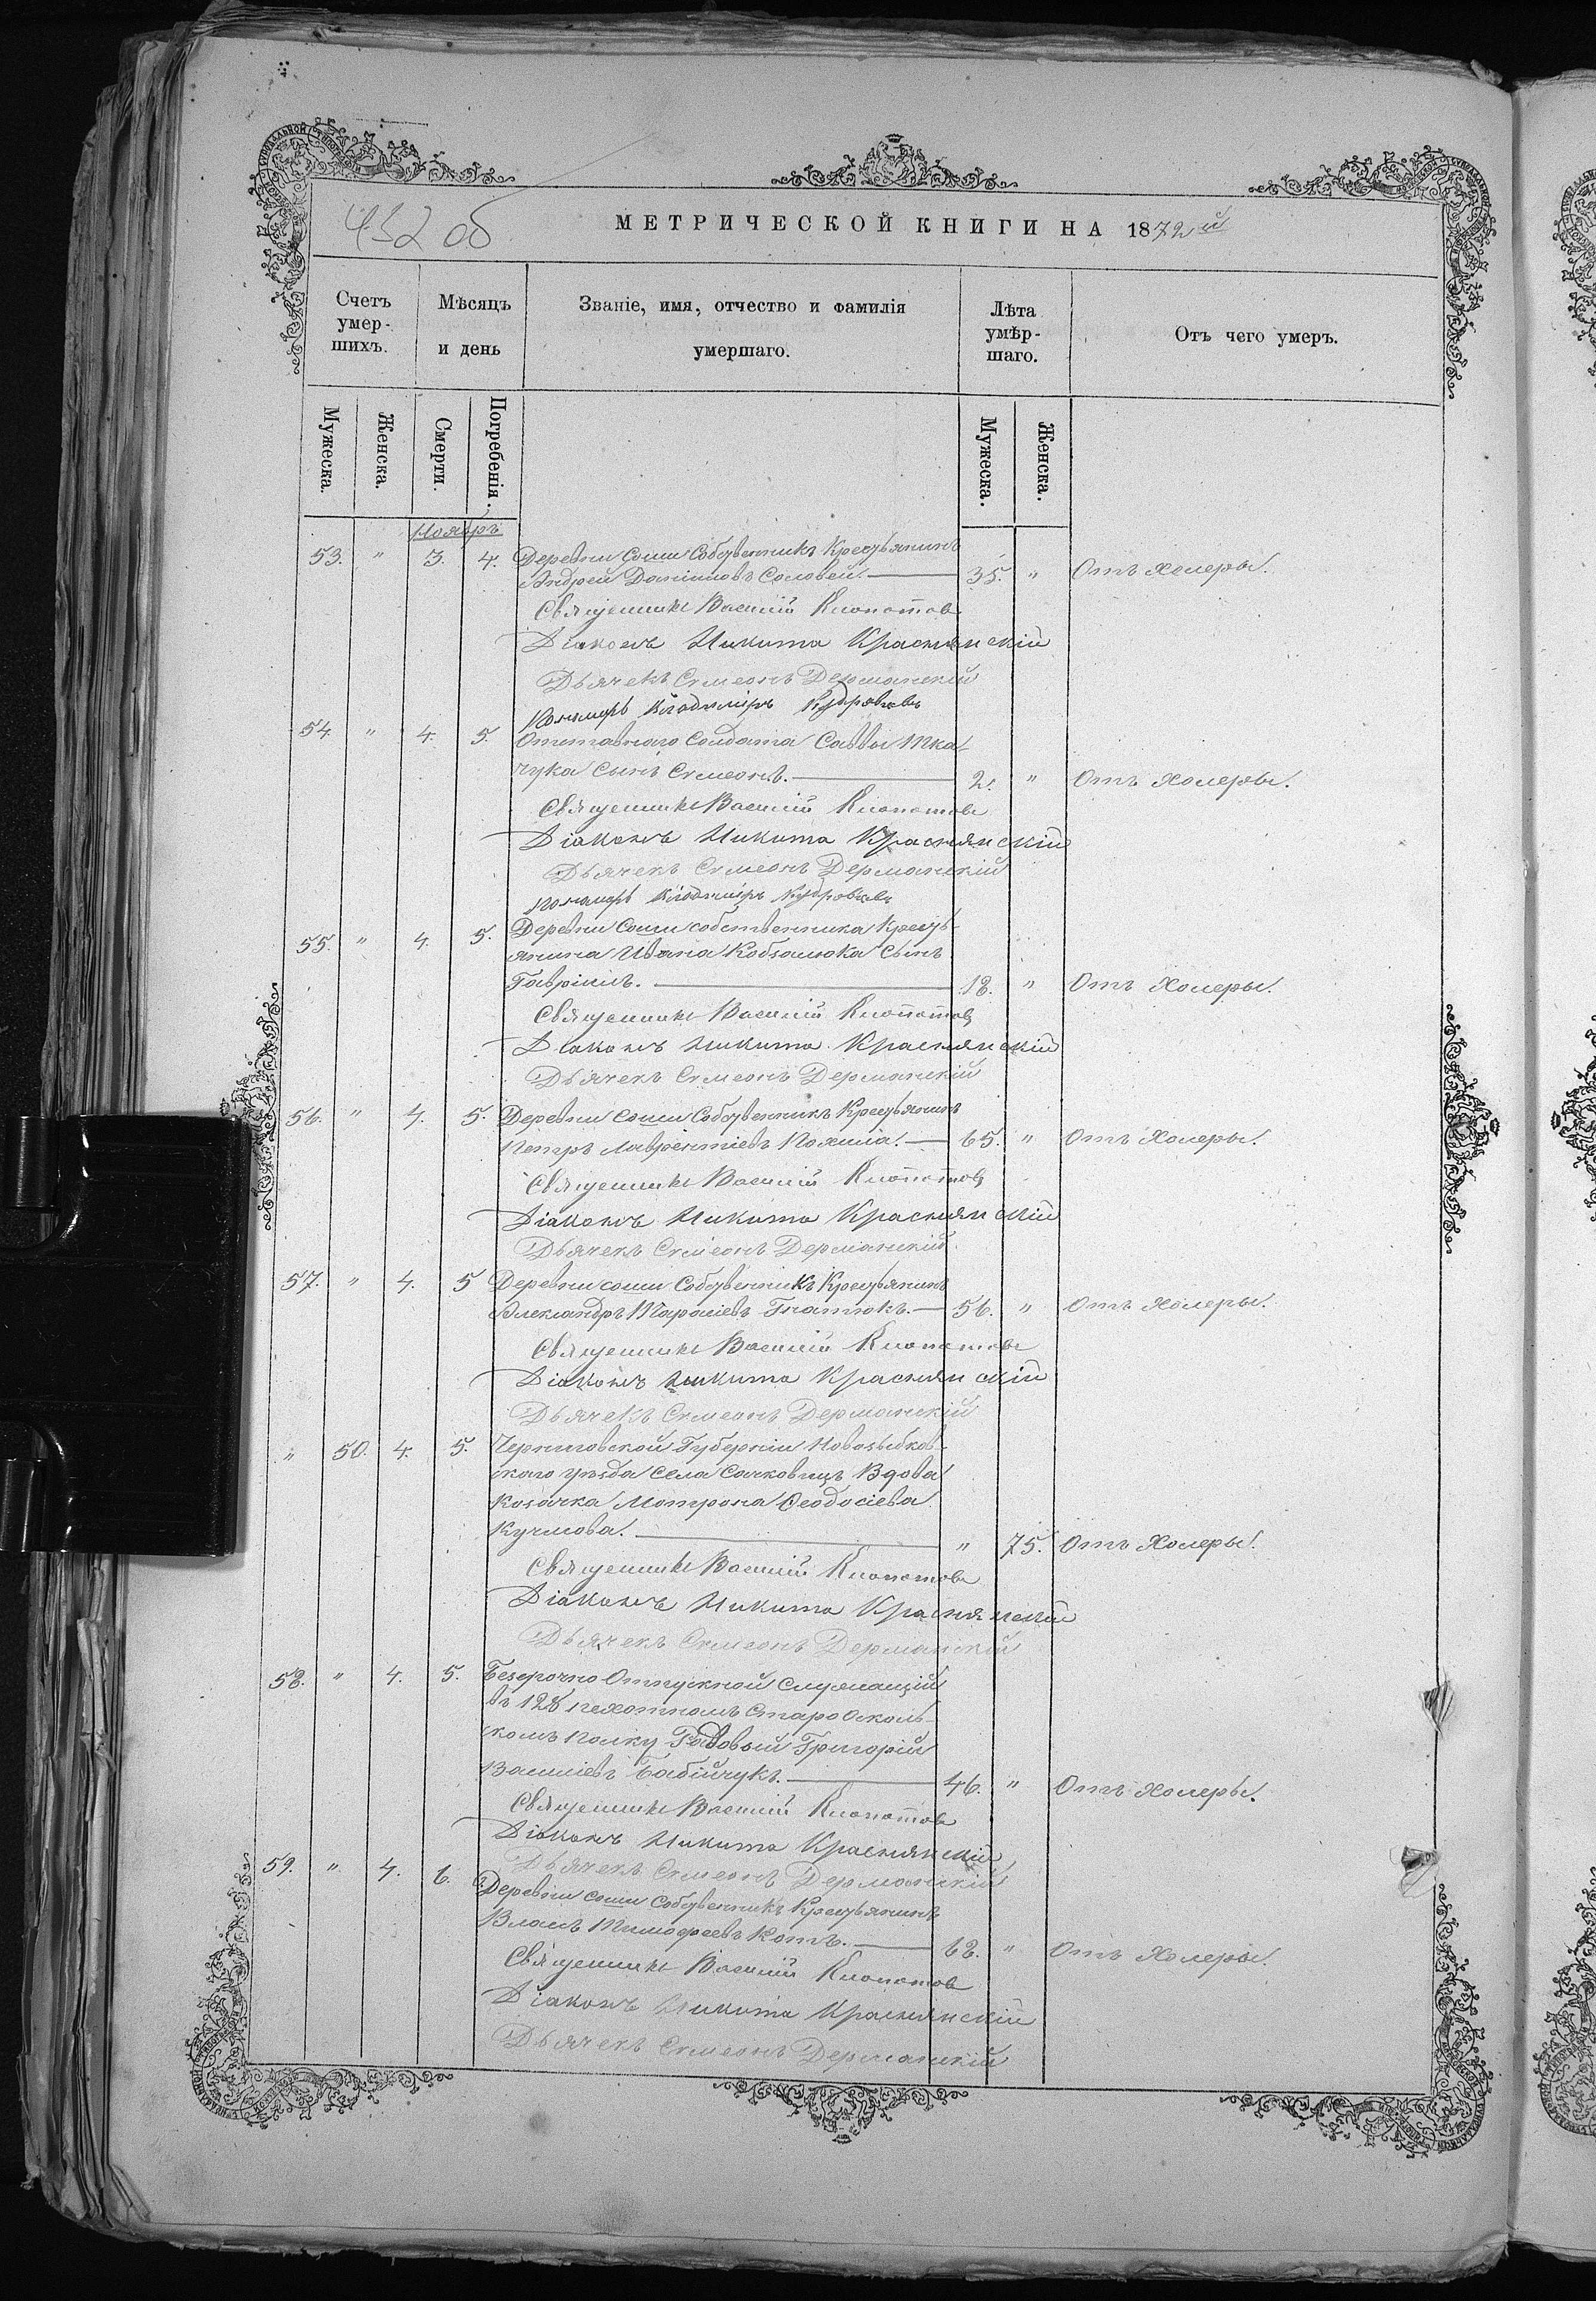 432 об
МЕТРИЧЕСКОЙ КНИГИ НА 1872й
Счетъ умер-шихъ.
Мѣсяцъ и день
Званіе, имя, отчество и фамилія умершаго.
Лѣта умѣр-шаго.
Отъ чего умеръ.
Мужеска.
Женска.
Смерти.
Погребенія.
Мужеска.
Женска.
Ноябрь
53. " 3. 4. Деревни Соши Собственникъ Крестьянинъ
Андрей Даніиловъ Соловей. 35. " Отъ холеры.
Священникъ Василій Клопотовъ
Діаконъ Никита Краснянскій
Дьячекъ Симеонъ Дерманскій
Пономарь Владиміръ
54. " 4. 5. Отставнаго Солдата Саввы Тка-
чука Сынъ Симеонъ. 2. " Отъ Холеры.
Священникъ Василій Клопотовъ
Діаконъ Никита Краснянскій
Дьячекъ Симеонъ Дерманскій
Пономарь Владиміръ
55. " 4. 5. Деревни Соши собственника Кресть-
янина Ивана Кобзалюка Сынъ
Гавріилъ. 18. " Отъ Холеры.
Священникъ Василій Клопотовъ
Діаконъ Никита Краснянскій
Дьячекъ Симеонъ Дерманскій
56. " 4. 5. Деревни Соши Собственникъ Крестьянинъ
Петръ Лаврентіевъ 65. " Отъ Холеры.
Священникъ Василій Клопотовъ
Діаконъ Никита Краснянскій
Дьячекъ Симеонъ Дерманскій
57. " 4. 5 Деревни Соши Собственникъ Крестьянинъ
Александръ Тарасіевъ Гнатюкъ. 56. " Отъ Холеры.
Священникъ Василій Клопотовъ
Діаконъ Никита Краснянскій
Дьячекъ Симеонъ Дерманскій
" 50. 4. 5. Черниговской Губерніи Новозыбков-
скаго уѣзда Села Сачковицъ Вдова
Козачка Матрона Ѳеодосіева
Кучмова. " 75. Отъ Холеры.
Священникъ Василій Клопотовъ
Діаконъ Никита Краснянскій
Дьячекъ Симеонъ Дерманскій
58. " 4. 5. Безсрочно Отпускной Служащій
въ 128 пехотномъ Старо Осколь-
скомъ полку Рядовый Григорій
Василіевъ Бабійчукъ. 46. " Отъ холеры.
Священникъ Василій Клопотовъ
Діаконъ Никита Краснянскій
Дьячекъ Симеонъ Дерманскій
59. " 4. 6. Деревни Соши Собственникъ Крестьянинъ
Власъ Тимофеевъ Котъ. 68. " Отъ Холеры.
Священникъ Василій Клопотовъ
Діаконъ Никита Краснянскій
Дьячекъ Симеонъ Дерманскій